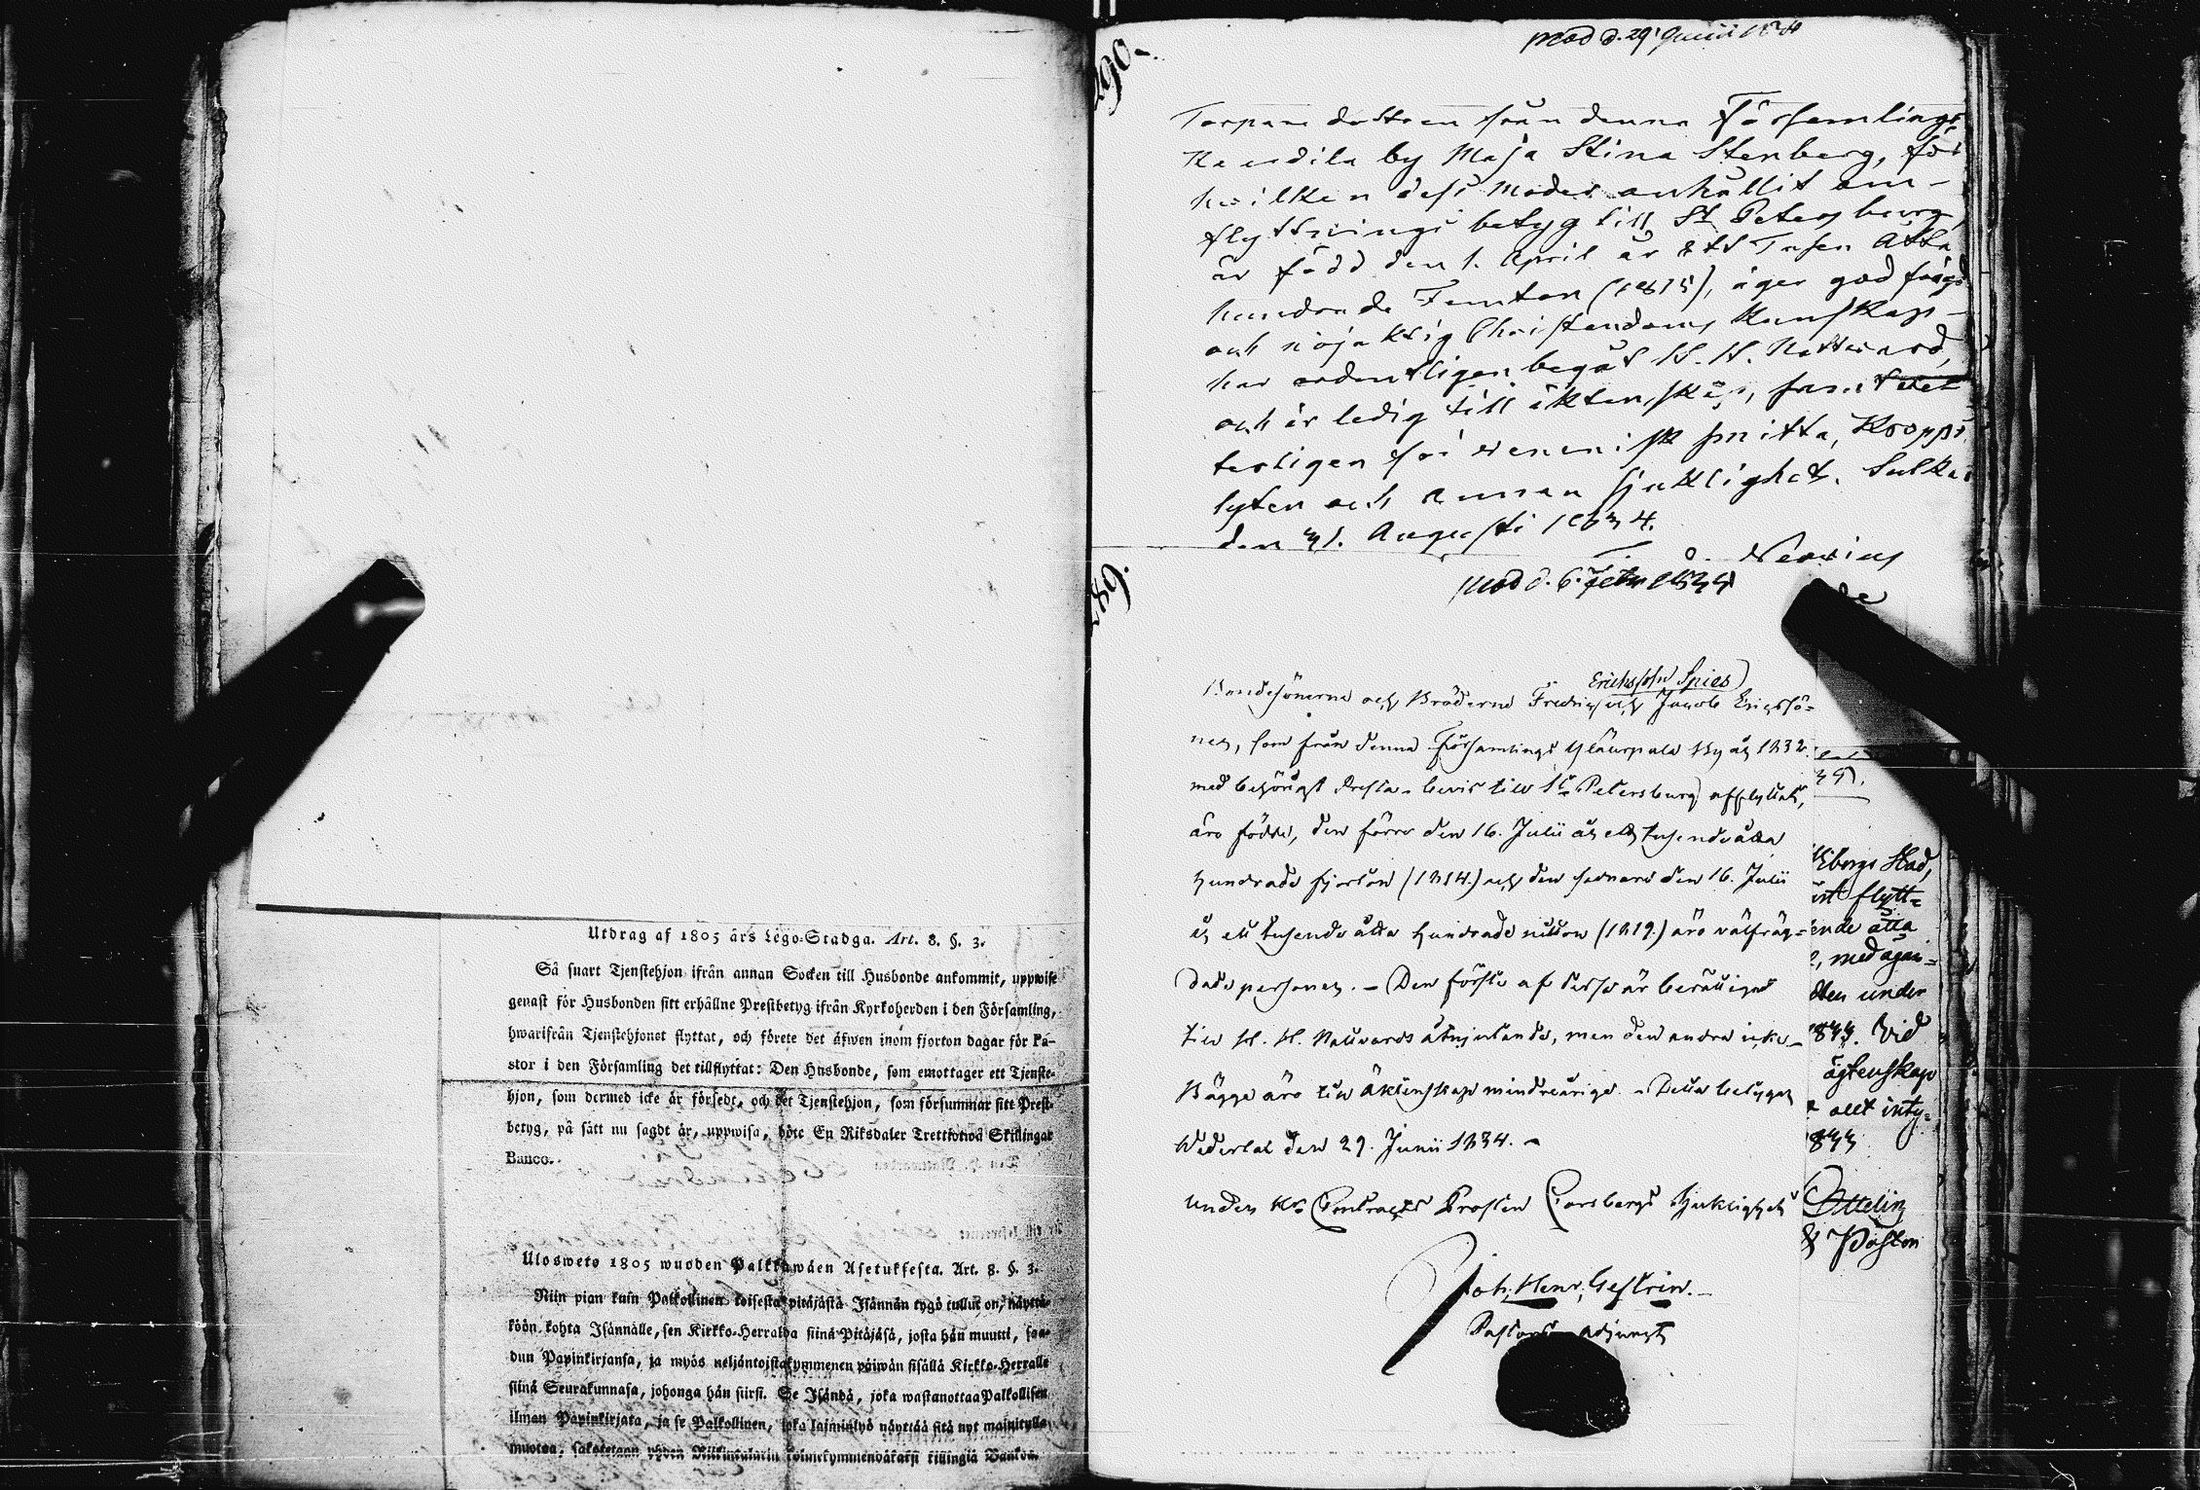 Utdrag af 1805 års Lego-Stadga. Art. 8. §. 3.
Så snart Tjenstehjon ifrån annan Socken till Husbonde ankommit, uppwise
genast för Husbonden sitt erhållne Prestbetyg ifrån Kyrkoherden i den Församling,
hwarifrån Tjenstehjonet flyttat, och förete det äfwen inom fjorton dagar för Pa-
stor i den Församling det tillflyttat: Den Husbonde, som emottager ett Tjenste-
hjon, som dermed icke är försedt, och det Tjenstehjon, som försummar sitt Prest-
betyg, på sätt nu sagdt är, uppwisa, böte En Riksdaler Trettiotwå Skillingar
Banco.
Ulosweto 1805 wuoden Palkkawäen Asetuksesta. Art. 8. §. 3.
Niin pian kuin Palkollinen toisesta pitäjästä Isännän tygö tullut on, näyttä-
köön kohta Isännälle, sen Kirkko-Herralda siinä Pitäjäsä, josta hän muutti, saa-
dun Papinkirjansa, ja myös neljäntoistakymmenen päiwän sisällä Kirkko-Herralle
siinä Seurakunnasa, johonga hän siirsi. Se Isändä, joka wastanottaa Palkollisen
ilman Papinkirjata, ja se Palkollinen, joka laiminlyö näyttää sitä nyt mainitulla
muotoa, sakotetaan yhden Riikintalarin
Torpare dottren från denna Församlings
by Maja Stina Stenberg, för
hvilken dess Moder anhållit om
flyttnings betyg till St Petersburg,
är född den 1. April år Ett Tusen Åtta
hundrade Femton (1815), äger god frägd
och nöjaktig Christendoms Kunskap
har ordentligen begått H. H. Nattvard,
och är ledig till äktenskap, samt
för venerisk smitta, Kropps
lyten och annan sjuklighet.
den 31. Augusti 1834.
Erichssön Spies
Bondesönerne och Bröderne Fredric och Jacob Ericssö=
ner, som från denna Församlings By år 1832
med behörigt Presta-bevis till St Petersburg afflyttat,
äro födde, den förre den 16. Julii år ett tusende åtta
hundrade fjorton (1814.) och den sednare den 16. Julii
år ett tusende åtta hundrade nitton (1819.) äro välfräg=
dade personer. – Den förste af dessa är berättigad
till H. H. Nattvards åtnjutande, men den andre icke –
Bägge äro till Äktenskap minderårige. – Detta betygar
Wederlax den 29. Junii 1834. –
under Hr Contracts Prosten sjuklighet
Joh. Henr. Gestrin. –
Pastors adjunct
Wiborgs Stad,
flytt=
ende åtta
under
1833. Vid
ägtenskap
allt inty=
1833
Ottelin
Pastor